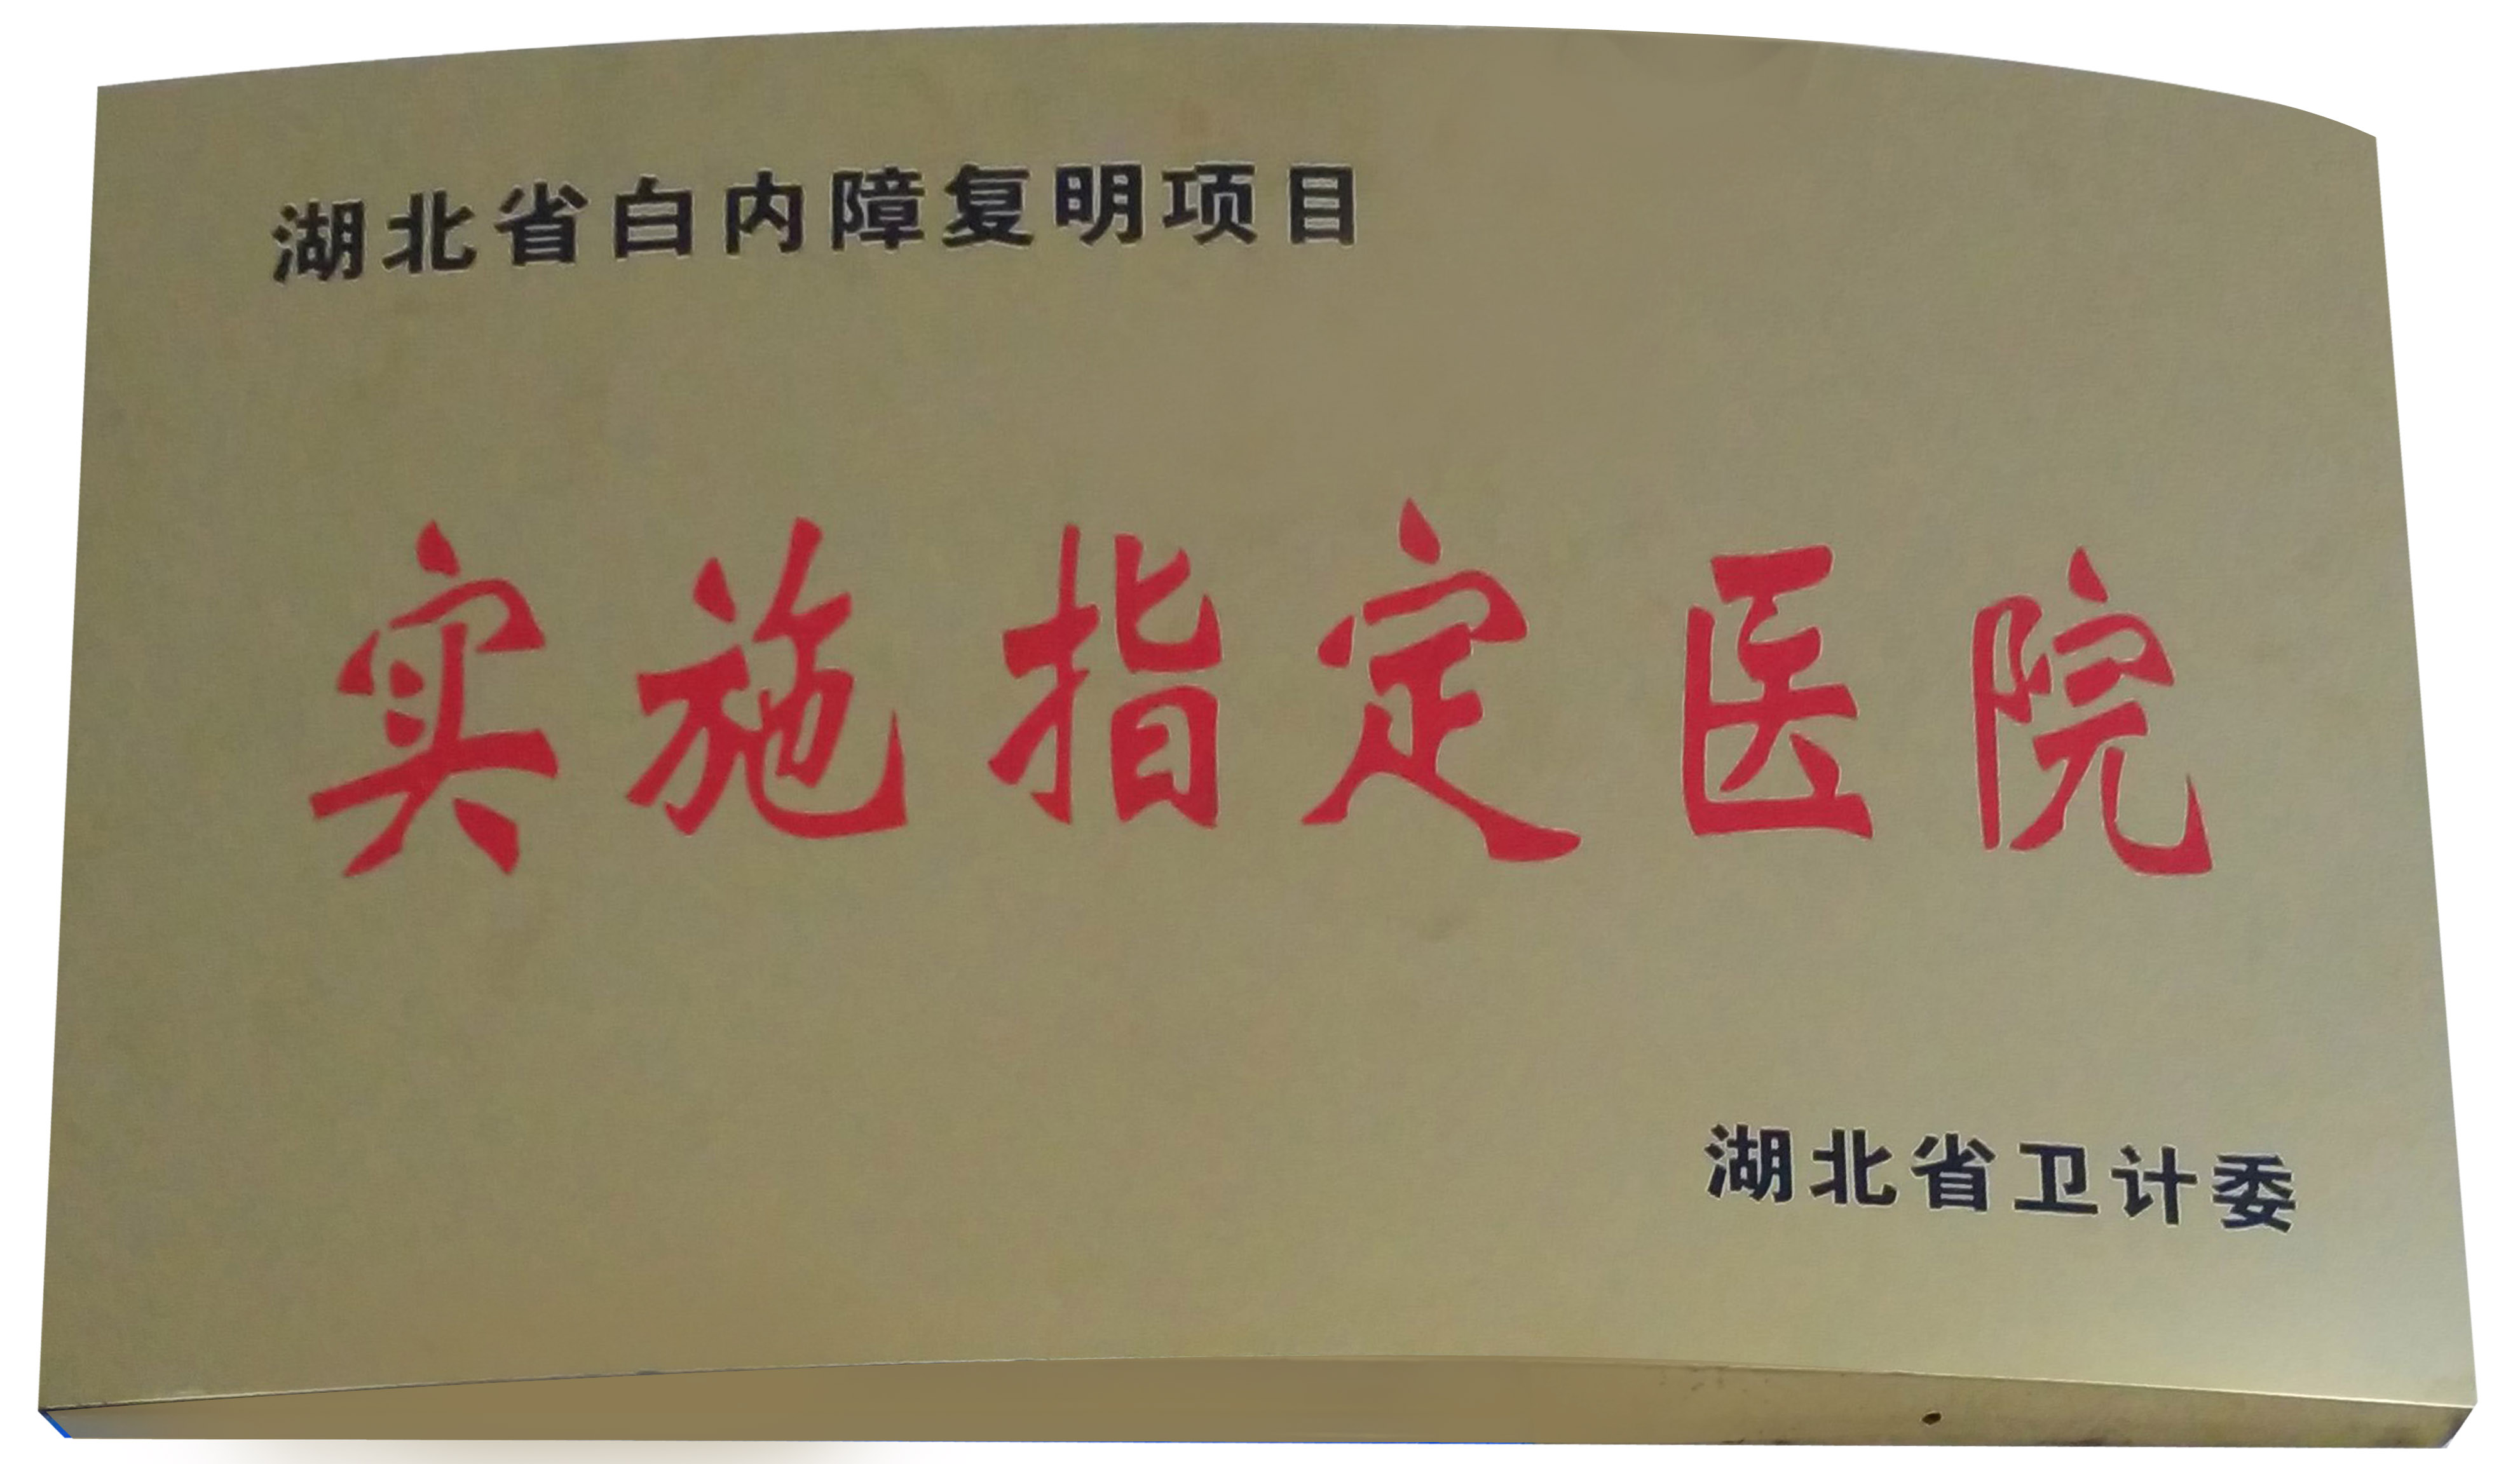 湖北省白内障复明项目
实施指定医院
湖北省卫计委